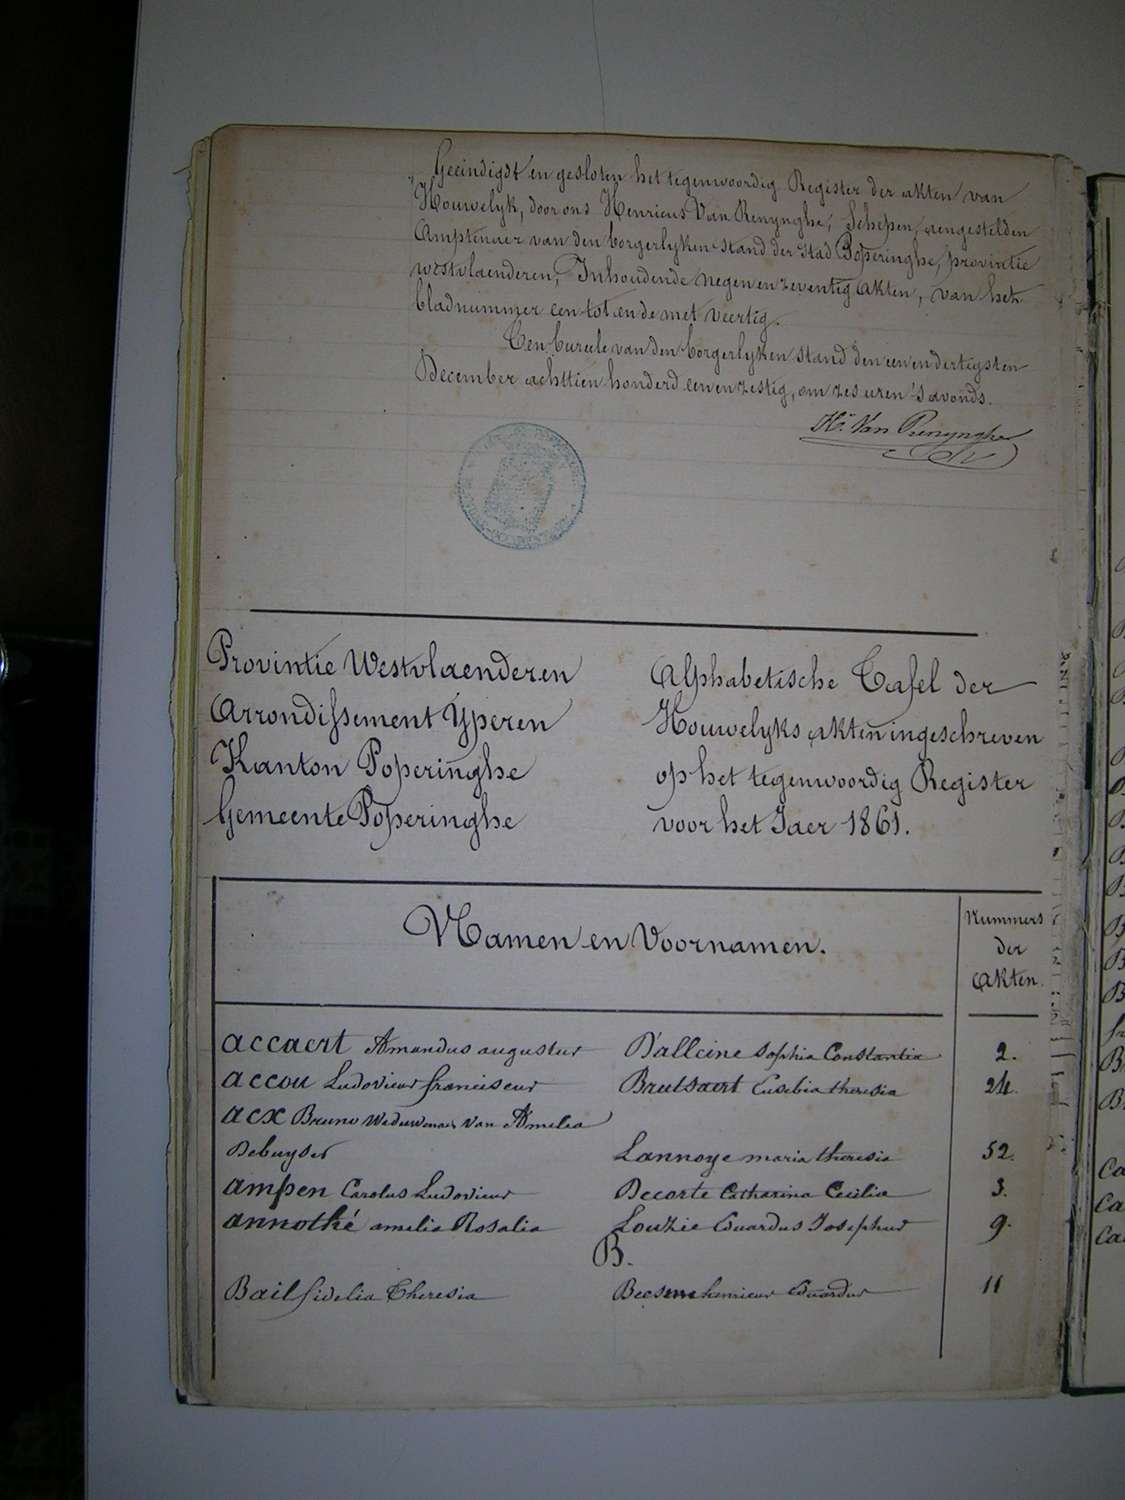 Geeindigd en gesloten het tegenwoordig Register der akten van
Houwelyk, door ons Henricus Van Renynghe, Schepen, aengestelden
Amptenaer van den borgerlyken stand der stad Poperinghe, provintie
westvlaenderen, Inhoudende negen en zeventig akten, van het
bladnummer een tot ende met veertig.
Ten bureele van den borgerlyken stand den een en dertigsten
December achttien honderd een en zestig, om zes uren 's avonds.
Hs. Van Renynghe
Provintie Westvlaenderen
Arrondissement Yperen
Kanton Poperinghe
Gemeente Poperinghe
Alphabetische Tafel der
Houwelyks akten ingeschreven
op het tegenwoordig Register
voor het Jaer 1861.
Namen en Voornamen.
Nummers
der
Akten.
accaert Amandus augustus D'alleine Sophia Constantia 2.
accou Ludovicus franciscus Brutsaert Eusebia theresia 24.
acx Bruno Weduwenaer van Amelia
Debuyser Lannoye maria theresia 52.
ampen Carolus Ludovicus Decorte Catharina Cecilia 3.
annothé amelia Rosalia Louzie Eduardus Josephus 9.
B.
Bail fidelia Theresia Eduardus 11